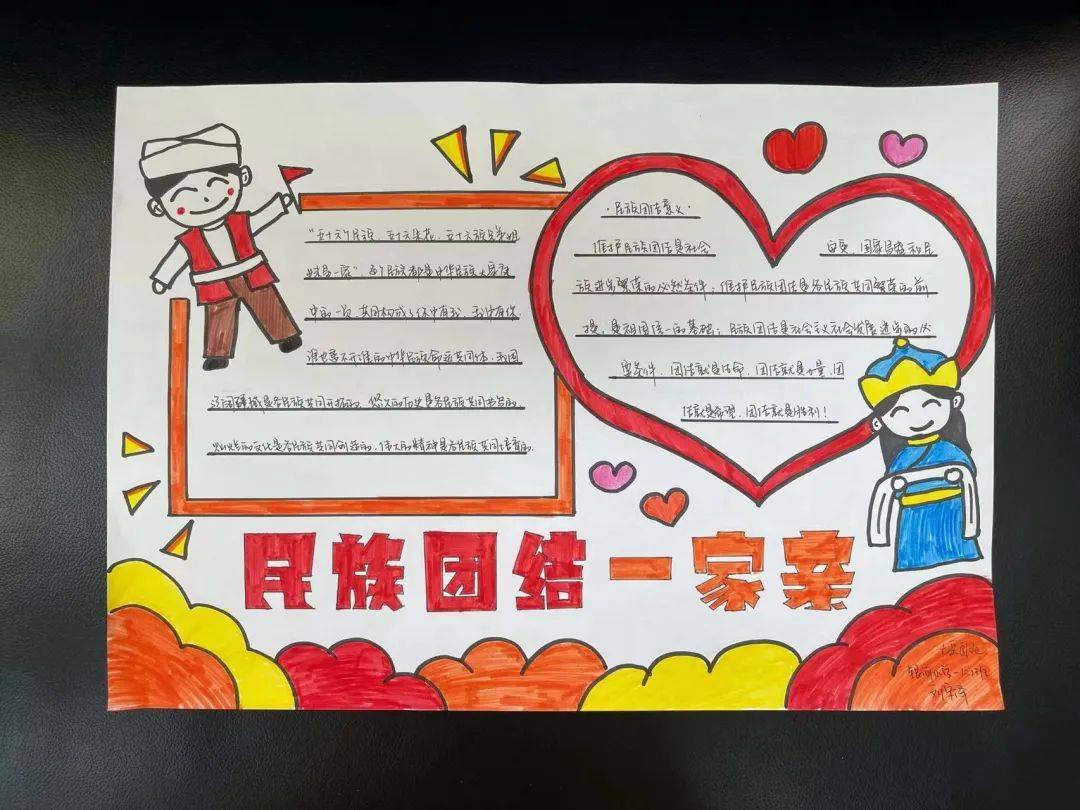 "五十六个民族，五十六朵花，五十六族兄弟姐
妹是一家"各个民族都是中华民族大家庭
中的一员 共同构成了你中有我，我中有你
谁也离不开谁的中华民族命运共同体，我国
辽阔疆域是各民族共同开拓的，悠久的历史是各民族共同书写的
灿烂的文化是各民族共同创造的，伟大的精神是各民族共同培育的.
·民族团结意义·
维护民族团结是社会安定、国家昌盛和民
族进步繁荣的必然条件；维护民族团结是各民族共同繁荣的前
提，是祖国统一的基础；民族团结是社会主义社会发展进步的必
要条件，团结就是生命，团结就是力量，团
结就是希望，团结就是胜利！
民族团结一家亲